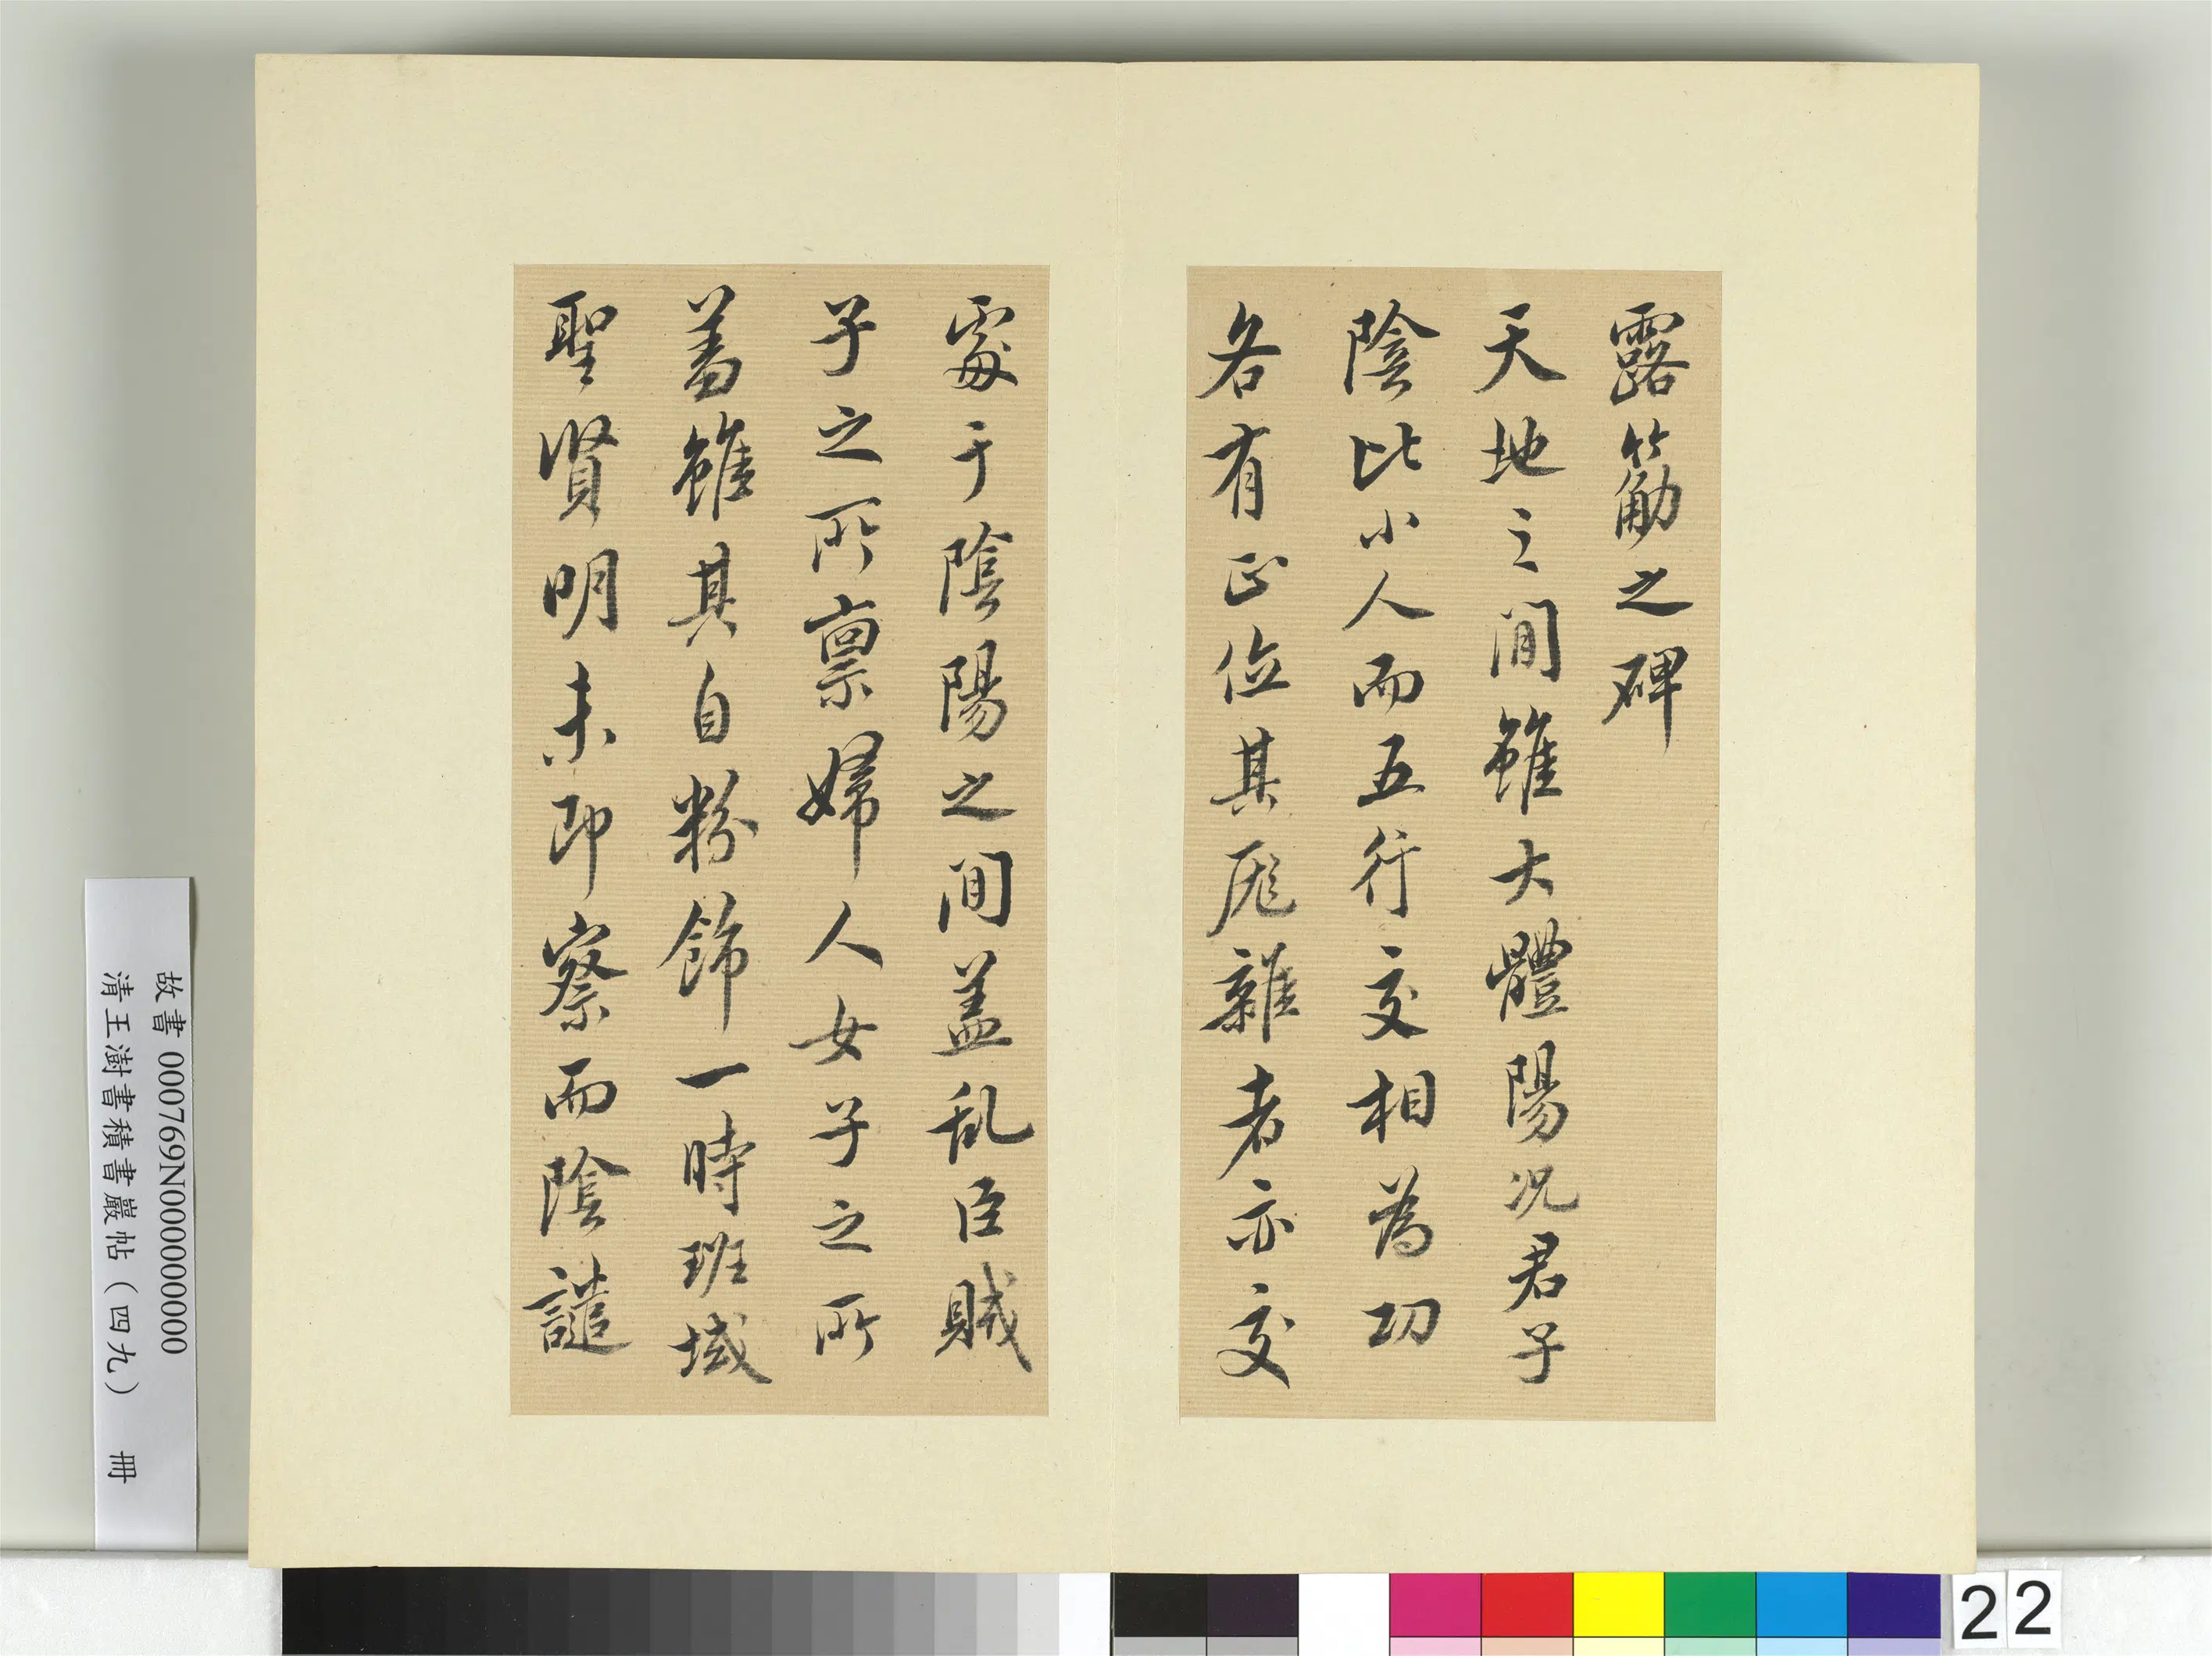 露筋之碑
天地之間雖大體陽況君子
陰比小人而五行交相為功
各有正位其厖雜者亦交
處于陰陽之間盖乱臣賊
子之所禀婦人女子之所
羞雖其自粉飾一時班域
聖賢明未即察而陰譴
故書 000769N000000000
清王澍書積書巖帖（四九） 冊
22